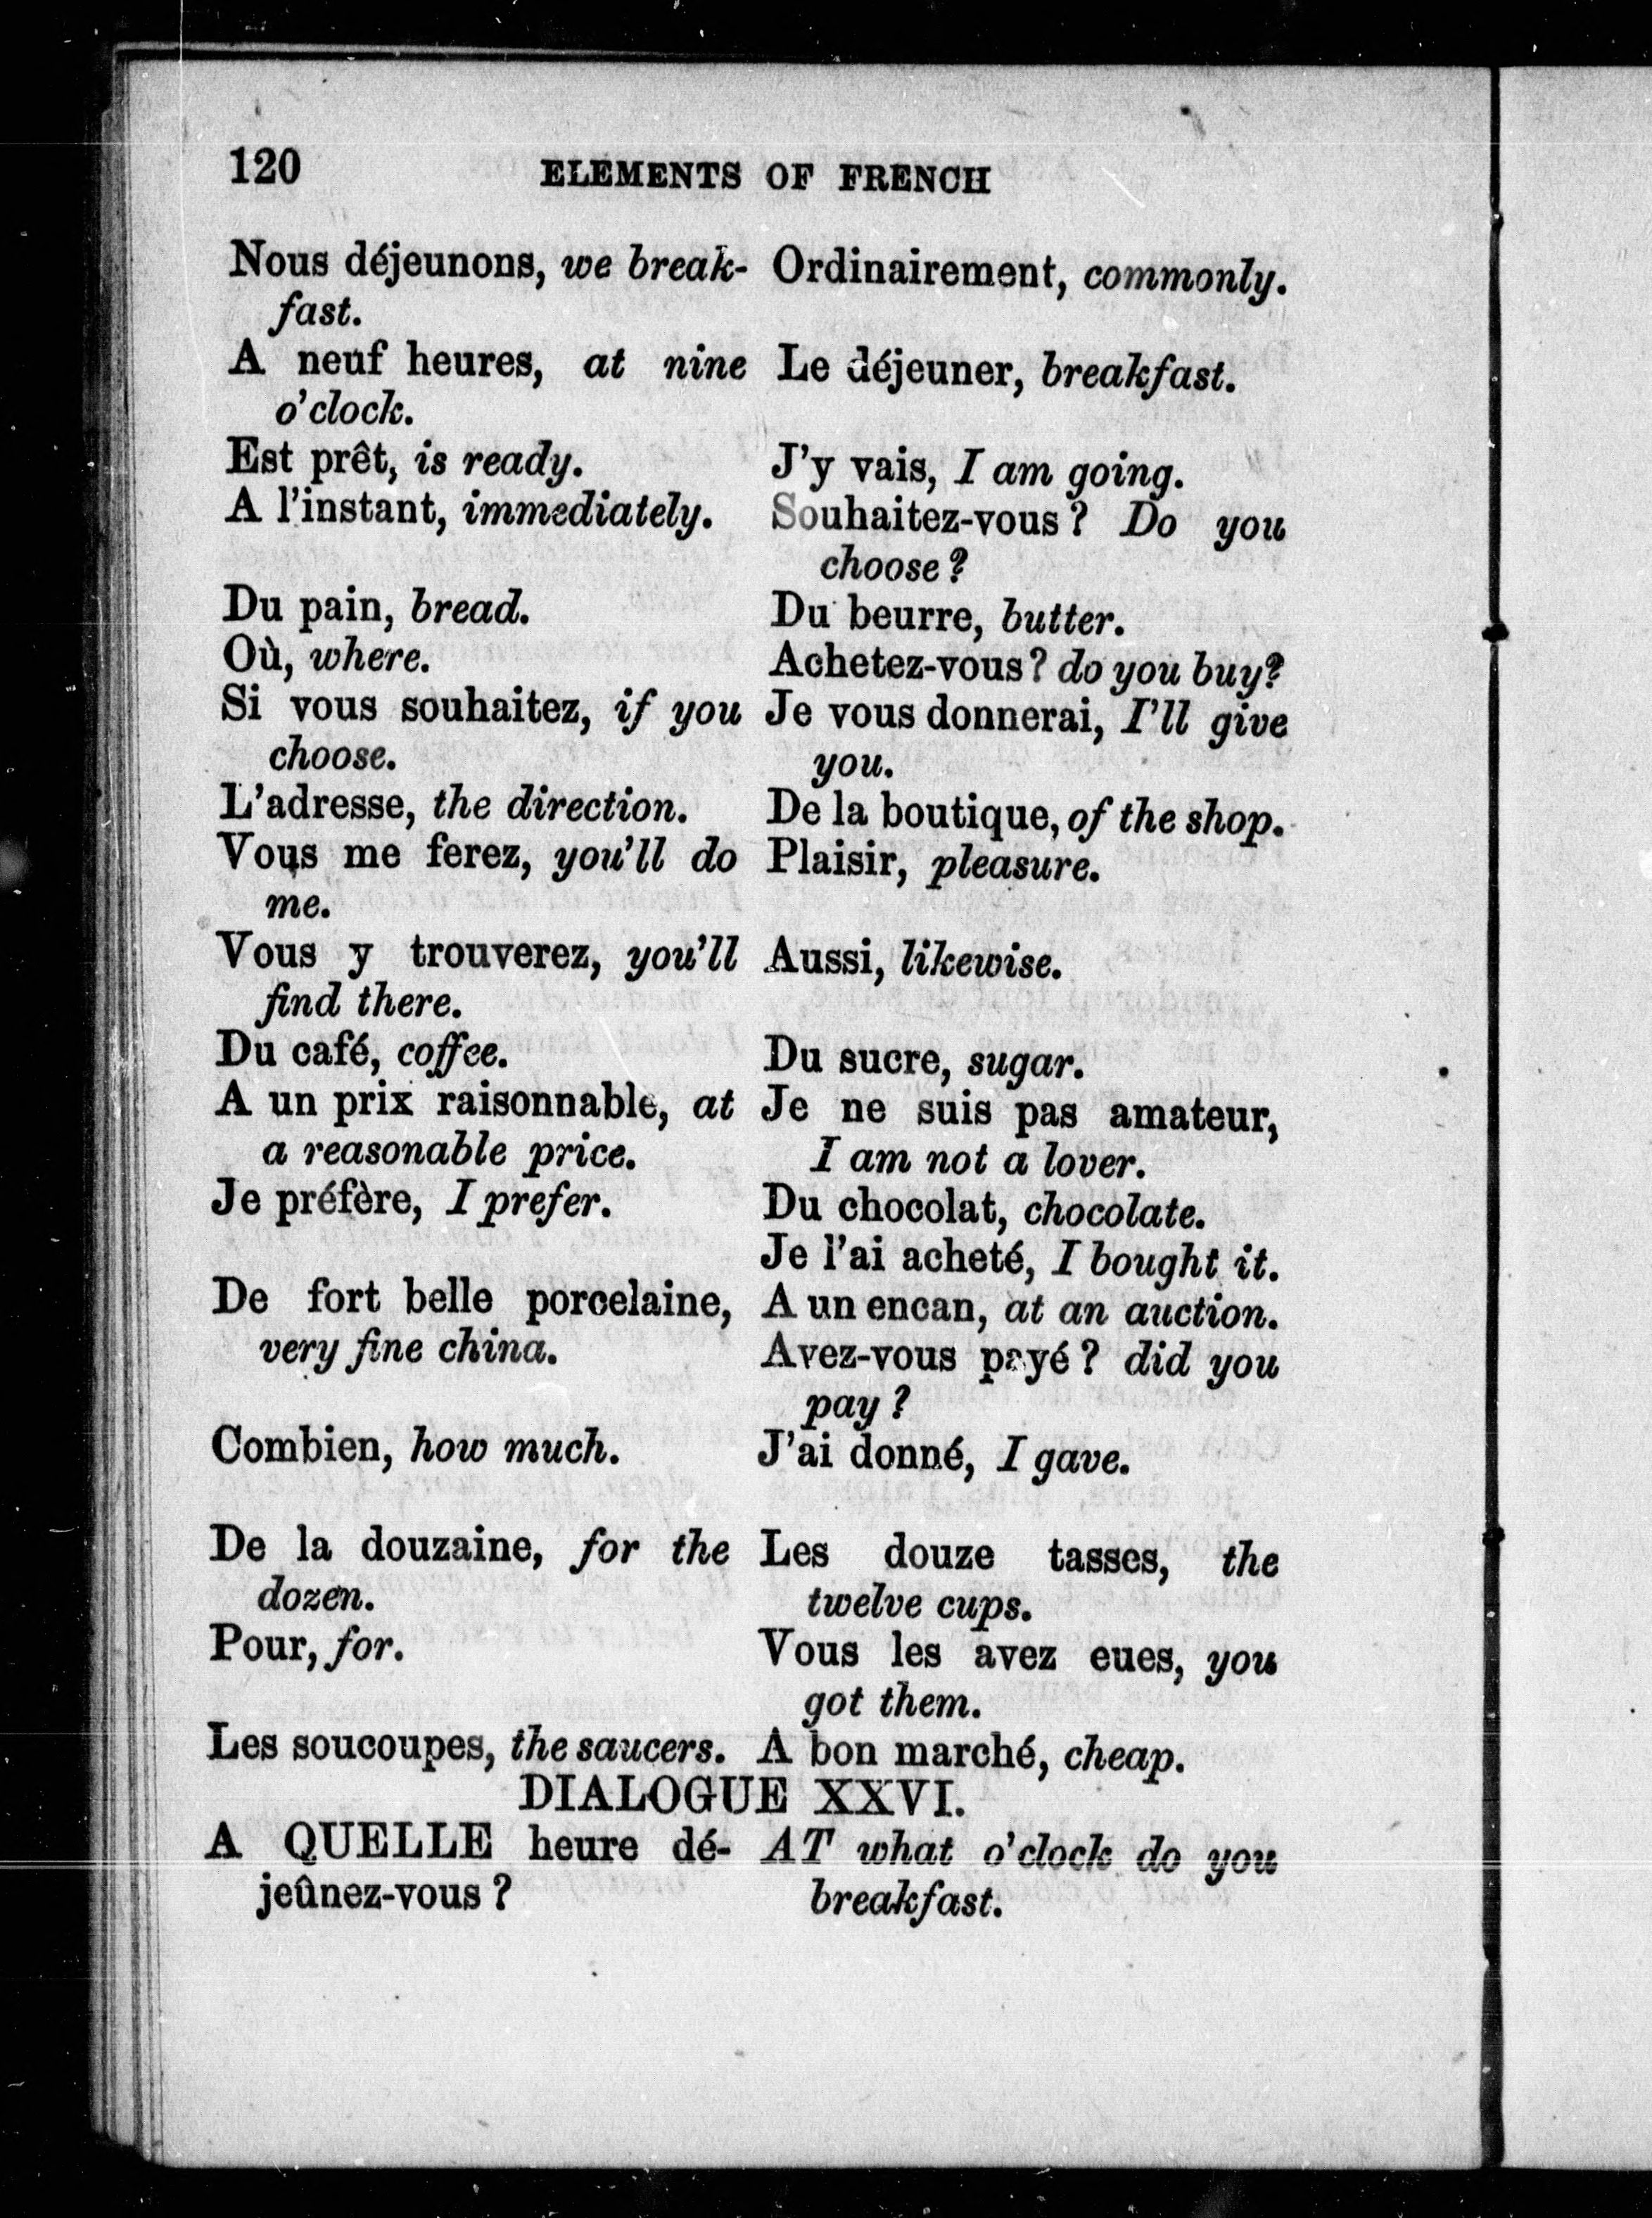 120 ELEMENTS OF FRENCH
Nous déjeunons, we break-
fast.
A neuf heures, at nine
o'clock.
Est prêt, is ready.
A l'instant, immediately.
Du pain, bread.
Où, where.
Si vous souhaitez, if you
choose.
L'adresse, the direction.
Vous me ferez, you'll do
me.
Vous y trouverez, you'll
find there.
Du café, coffee.
A un prix raisonnable, at
a reasonable price.
Je préfère, I prefer.
De fort belle porcelaine,
very fine china.
Combien, how much.
De la douzaine, for the
dozen.
Pour, for.
Les soucoupes, the saucers.
Ordinairement, commonly.
Le déjeuner, breakfast.
J'y vais, I am going.
Souhaitez-vous? Do you
choose?
Du beurre, butter.
Achetez-vous? do you buy?
Je vous donnerai, I'll give
you.
De la boutique, of the shop.
Plaisir, pleasure.
Aussi, likewise.
Du sucre, sugar.
Je ne suis pas amateur,
I am not a lover.
Du chocolat, chocolate.
Je l'ai acheté, I bought it.
A un encan, at an auction.
Avez-vous payé? did you
pay?
J'ai donné, I gave.
Les douze tasses, the
twelve cups.
Vous les avez eues, you
got them.
A bon marché, cheap.
DIALOGUE XXVI.
A QUELLE heure dé-
jeûnez-vous?
AT what o'clock do you
breakfast.